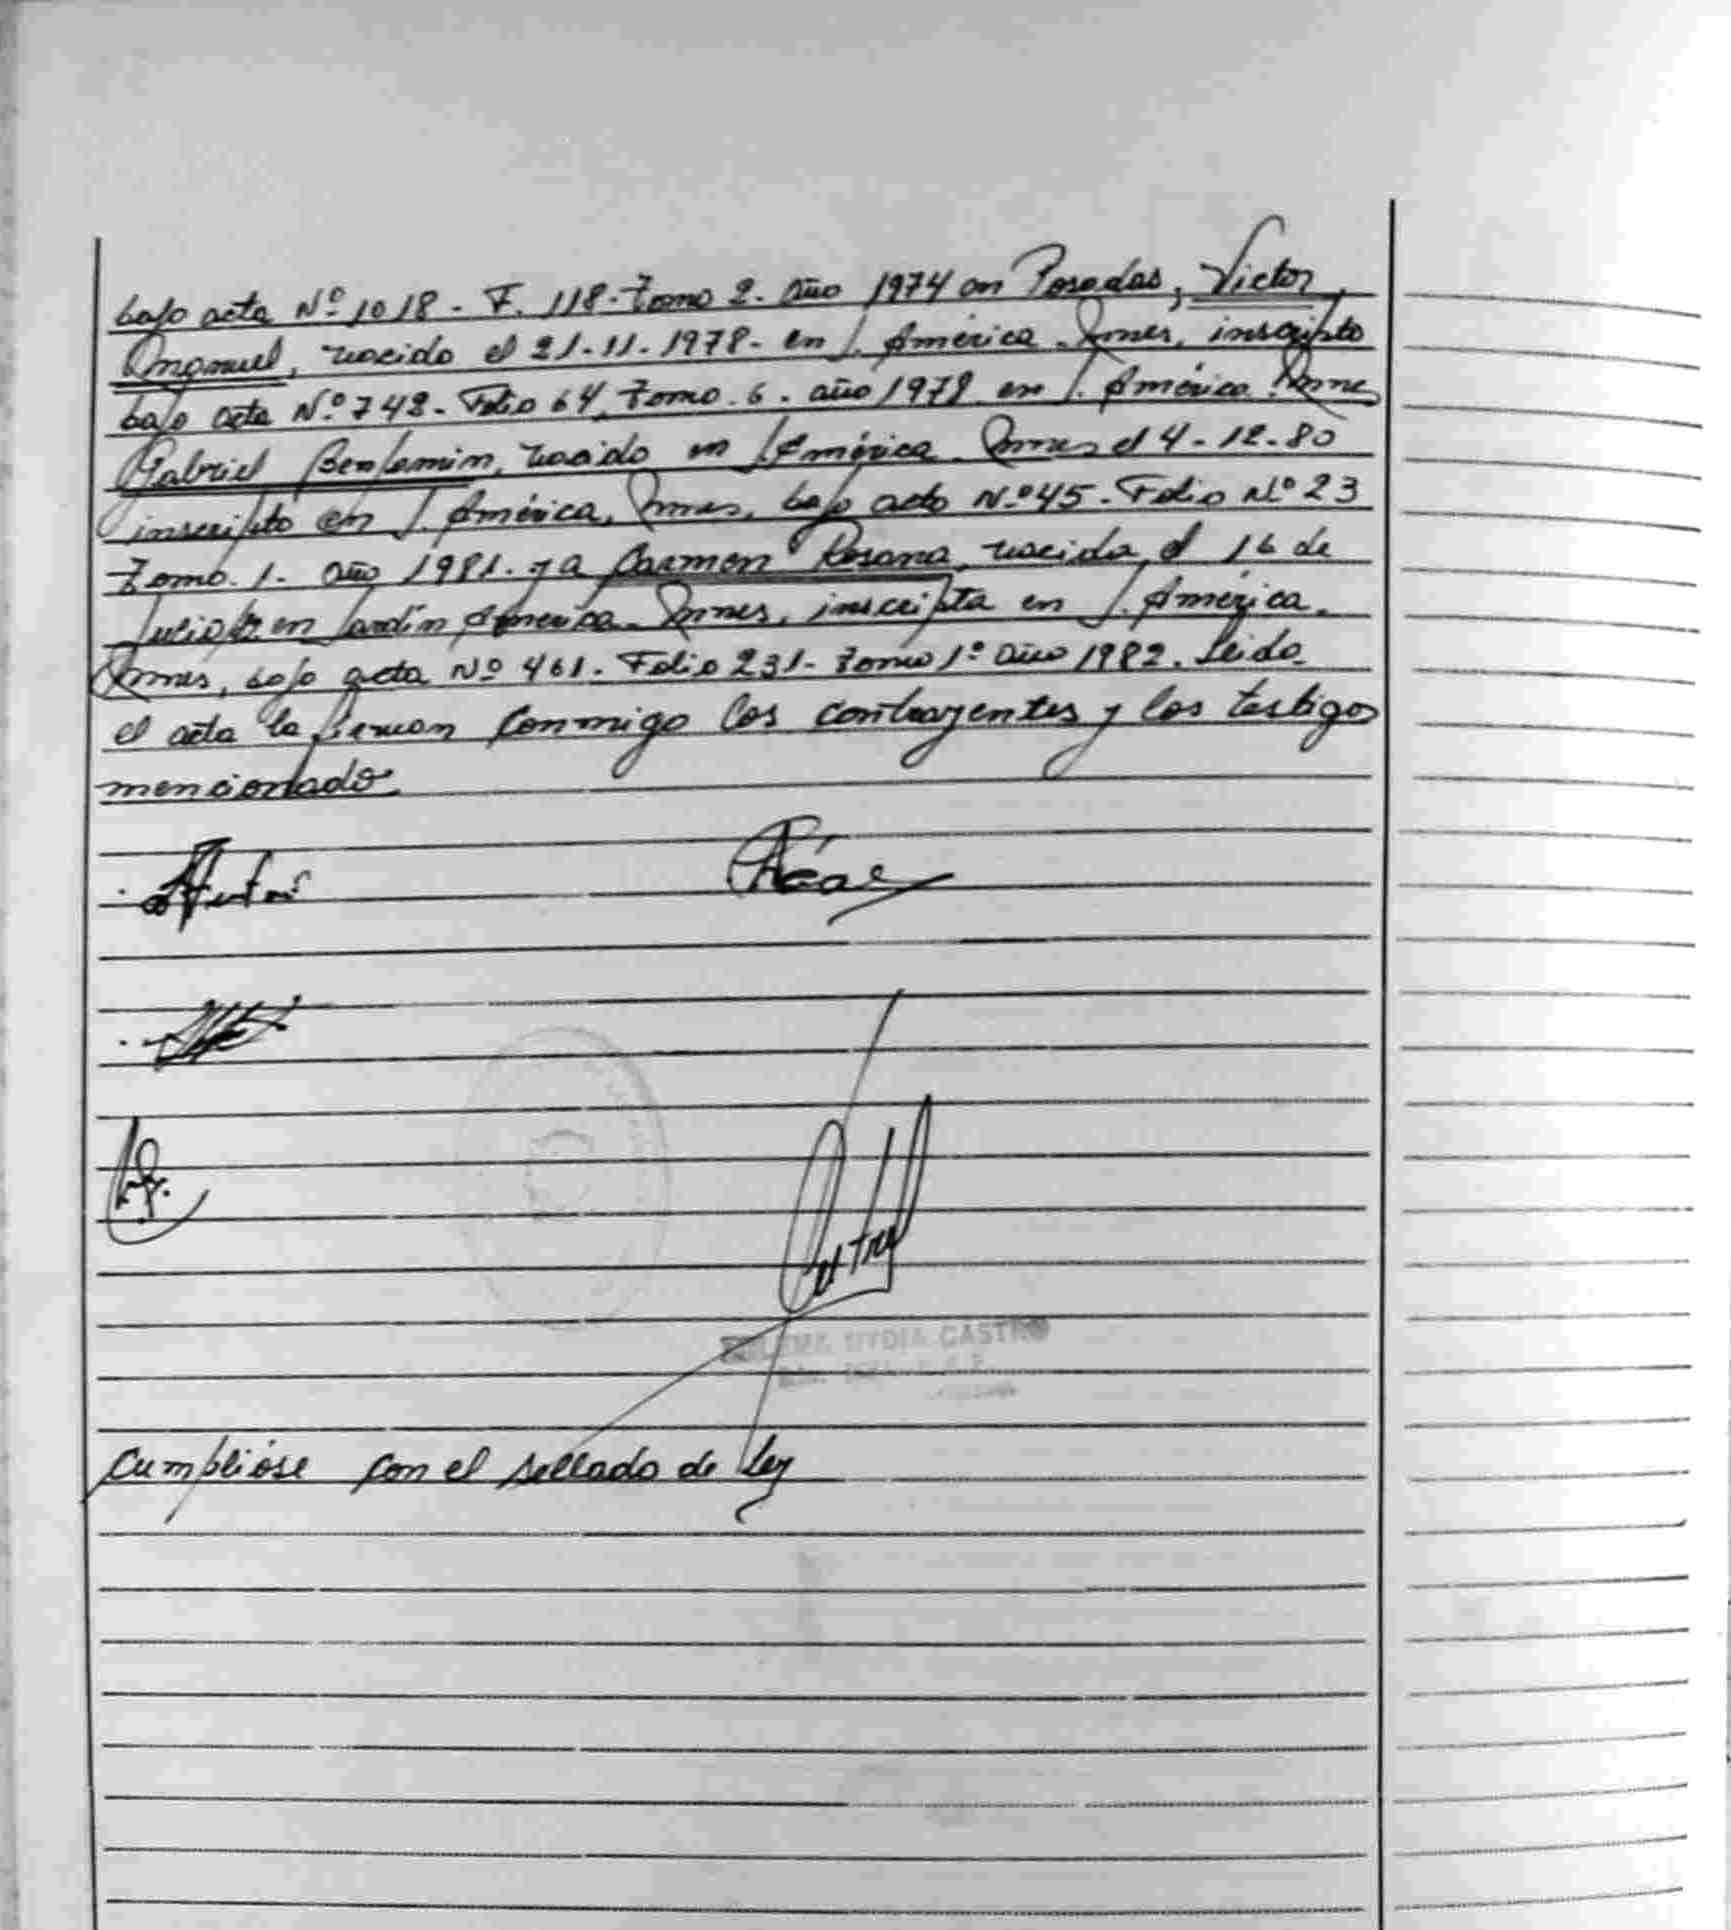 bajo acta Nº 1018 - F. 118 - Tomo 2. año 1974 en Posadas, Victor
Emanuel, nacido el 21-11-1978 - en J. América - Mnes, inscripto
bajo acta Nº 742 - Folio 64, Tomo. 6. año 1978 en J. América. Mnes
Gabriel Benjamin, nacido en J. América Mnes el 4-12-80
inscripto en J. América, Mnes, bajo acta Nº 45 - Folio Nº 23
Tomo. 1. año 1981. y a Carmen Rosana, nacida el 16 de
Julio en Jardín América - Mnes, inscripta en J. América.
Mnes, bajo acta Nº 461 - Folio 231 - Tomo 1º año 1982. Leida
el acta la firman conmigo los contrayentes y los testigos
mencionado
CASTRO
Cumplióse con el sellado de Ley